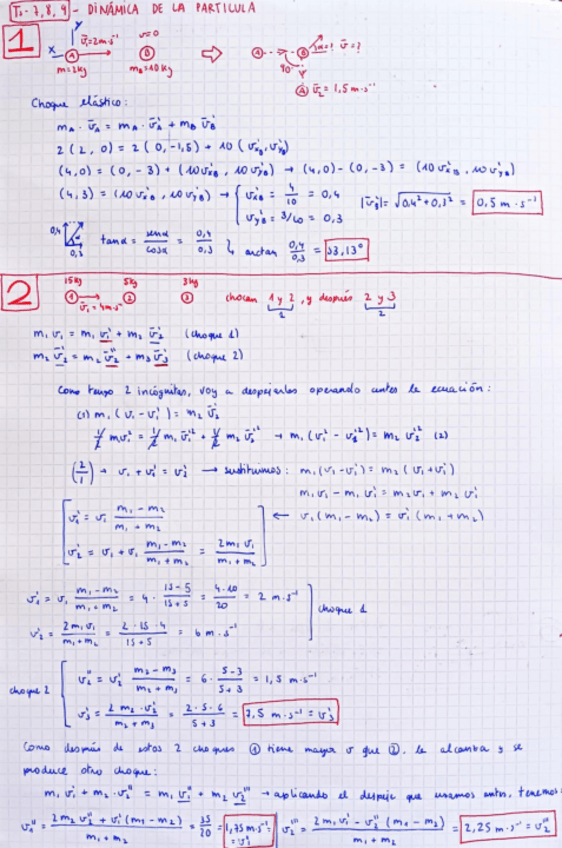 T. 7,8,9 - DINÁMICA DE LA PARTÍCULA
1
y
x A v̄₁=2m·s⁻¹ v=0 α=? v̄=?
B A B
m=2kg m_B=10kg 90°
A v̄₂=1,5m·s⁻¹
Choque elástico:
m_A · v̄_A = m_A · v̄'_A + m_B v̄'_B
2(2,0) = 2(0,-1,5) + 10(v'x_B, v'y_B)
(4,0) = (0,-3) + (10v'x_B, 10v'y_B) → (4,0)-(0,-3) = (10v'x_B, 10v'y_B)
(4,3) = (10v'x_B, 10v'y_B) → { v'x_B = 4/10 = 0,4 |v̄'_B| = √0,4²+0,3² = 0,5 m·s⁻¹
v'y_B = 3/10 = 0,3
0,4 α 0,3 tanα = senα/cosα = 0,4/0,3 } arctan 0,4/0,3 = 53,13°
2
15kg 5kg 3kg
1 v̄₁=4m·s⁻¹ 2 3 chocan 1 y 2, y después 2 y 3
2 2
m₁v₁ = m₁v̄'₁ + m₂v̄'₂ (choque 1)
m₂v̄'₂ = m₂v̄''₂ + m₃v̄'₃ (choque 2)
Como tengo 2 incógnitas, voy a despejarlas operando antes la ecuación:
(1) m₁(v₁-v'₁) = m₂v̄'₂
1/2 m₁v₁² = 1/2 m₁v̄'₁² + 1/2 m₂v̄'₂² → m₁(v₁²-v'₁²) = m₂v'₂² (2)
(2/1) → v₁+v'₁ = v'₂ → sustituimos: m₁(v₁-v'₁) = m₂(v₁+v'₁)
m₁v₁ - m₁v'₁ = m₂v₁ + m₂v'₁
v'₁ = v₁ (m₁-m₂)/(m₁+m₂) ← v₁(m₁-m₂) = v'₁(m₁+m₂)
v'₂ = v₁ + v₁ (m₁-m₂)/(m₁+m₂) = 2m₁v₁/(m₁+m₂)
v'₁ = v₁ (m₁-m₂)/(m₁+m₂) = 4 · (15-5)/(15+5) = 4·10/20 = 2 m·s⁻¹
choque 1
v'₂ = 2m₁v₁/(m₁+m₂) = 2·15·4/(15+5) = 6 m·s⁻¹
v''₂ = v'₂ (m₂-m₃)/(m₂+m₃) = 6 · (5-3)/(5+3) = 1,5 m·s⁻¹
choque 2
v'₃ = 2m₂·v'₂/(m₂+m₃) = 2·5·6/(5+3) = 7,5 m·s⁻¹ = v'₃
Como después de estos 2 choques 1 tiene mayor v que 2, la alcanza y se
produce otro choque:
m₁v'₁ + m₂·v''₂ = m₁v'' + m₂v''' → aplicando el despeje que usamos antes, tenemos:
v''₁ = (2m₂v''₂ + v'₁(m₁-m₂))/(m₁+m₂) = 35/20 = 1,75m·s⁻¹ = v''₁ v'''₂ = (2m₁v'₁ - v''₂(m₁-m₂))/(m₁+m₂) = 2,25 m·s⁻¹ = v'''₂